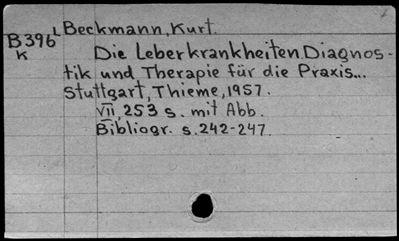 L Beckmann, Kurt.
B396
K
Die Leberkrankheiten Diagnos-
tik und Therapie für die Praxis...
Stuttgart, Thieme, 1957.
VII, 253 s. mit Abb.
Bibliogr. s. 242-247.